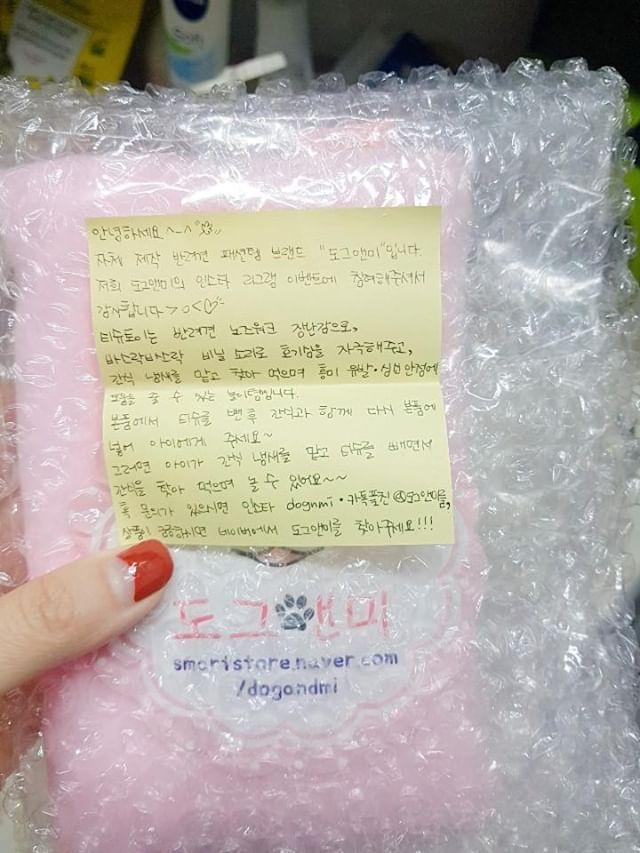 Soft
안녕하세요 ^-^
자체 제작 반려견 패션템 브랜드 "도그앤미"입니다.
저희 도그앤미의 인스타 리그램 이벤트에 참여해주셔서
감사합니다 >o<
티슈토이는 반려견 노즈워크 장난감으로,
바스락바스락 비닐 소리로 호기심을 자극해주고,
간식 냄새를 맡고 찾아 먹으며 흥미 유발·심신 안정에
도움을 줄 수 있는 놀이템입니다.
본품에서 티슈를 뺀 후 간식과 함께 다시 본품에
넣어 아이에게 주세요~
그러면 아이가 간식 냄새를 맡고 티슈를 빼면서
간식을 찾아 먹으며 놀 수 있어요~~
혹 문의가 있으시면 인스타 dognmi·카톡플친 @도그앤미를,
상품이 궁금하시면 네이버에서 도그앤미를 찾아주세요!!!
도그앤미
smartstore.naver.com
/dogandmi